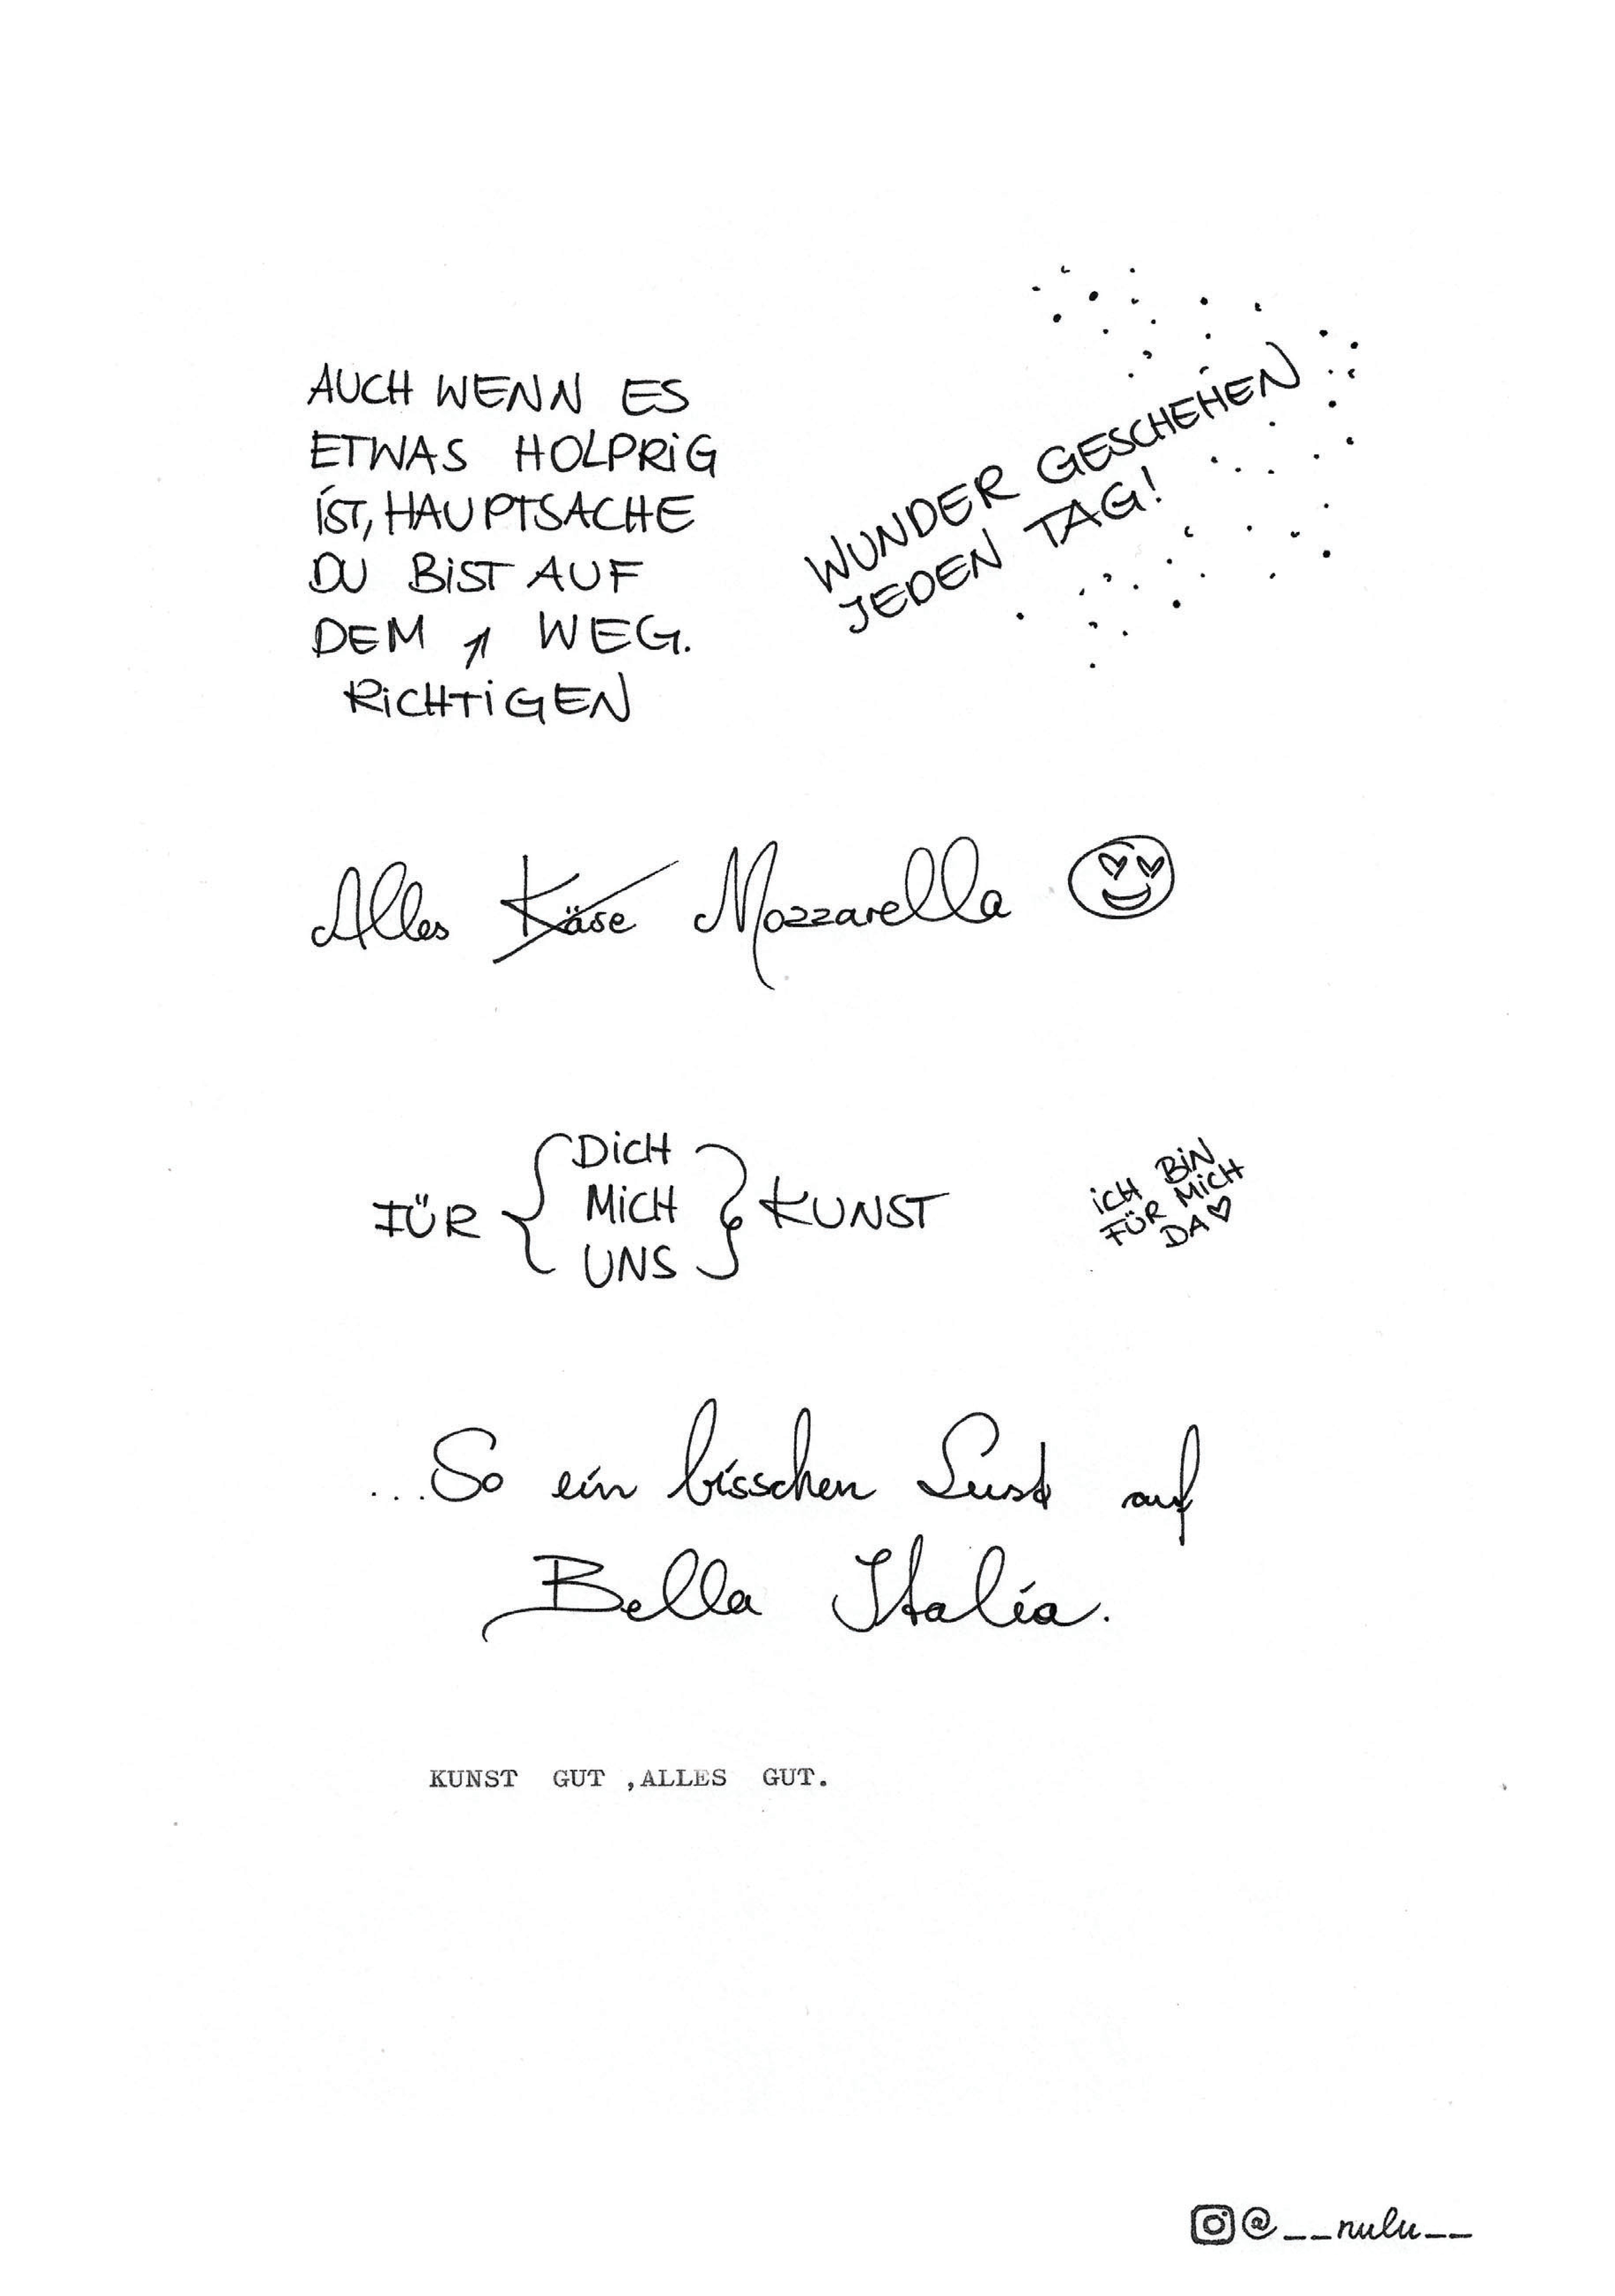 AUCH WENN ES
ETWAS HOLPRiG
iST, HAUPTSACHE
DU BiST AUF
DEM ↗ WEG.
RiCHTiGEN
WUNDER GESCHEHEN
JEDEN TAG!
Alles Käse Mozzarella
FÜR { DiCH MiCH UNS } KUNST
iCH BiN
FÜR MiCH
DA ♡
...So ein bisschen Lust auf
Bella Italia.
KUNST GUT ,ALLES GUT.
@__nulu__